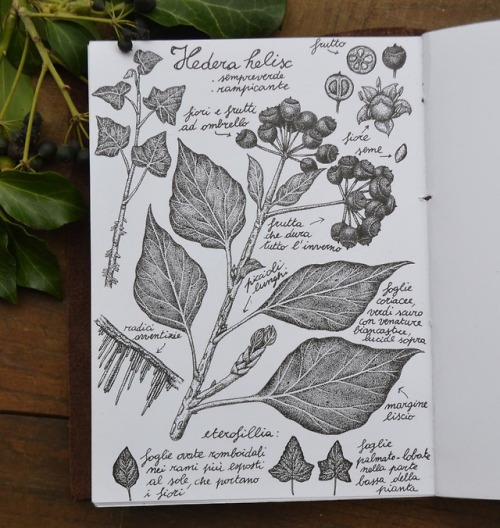 Hedera helix
. sempreverde
. rampicante
frutto
fiori e frutti
ad ombrello
fiore
seme
frutta
che dura
tutto l'inverno
piccioli
lunghi
foglie
coriacee,
verdi scuro
con venature
biancastre,
lucide sopra
radici
avventizie
margine
liscio
eterofillia:
foglie ovate romboidali
nei rami più esposti
al sole, che portano
i fiori
foglie
palmato-lobate
nella parte
bassa della
pianta